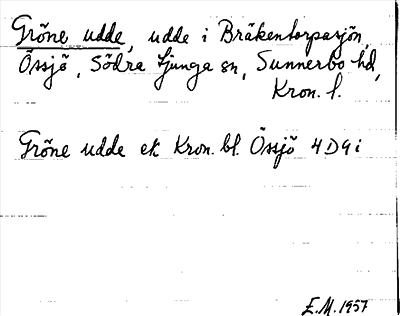 Gröne udde, udde i Bräkentorpasjön,
Össjö, Södra Ljunga sn, Sunnerbo hd,
Kron. l.
Gröne udde ek Kron. bl. Össjö 4D9i
E.M. 1957